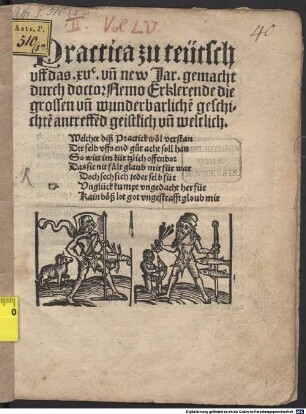 Astr. P.
510/5m
II. Vol LV
46
Practica zu teütsch
vff das. xvᶜ. vñ new Jar. gemacht
durch doctor Nemo Erklerende die
grossen vñ wunderbarlichẽ geschi-
chtẽ antreffẽd geistlich vñ weltlich.
Welcher diß Practick wöl verstan
Der selb vffs end güt acht soll han
So würt im kürtzlich offenbor
Das sie nit fält glaub mir für war
Doch sech sich jeder selb für
Vnglück kumpt vngedacht her für
Kain böß lot got vngestrafft gloub mir
0